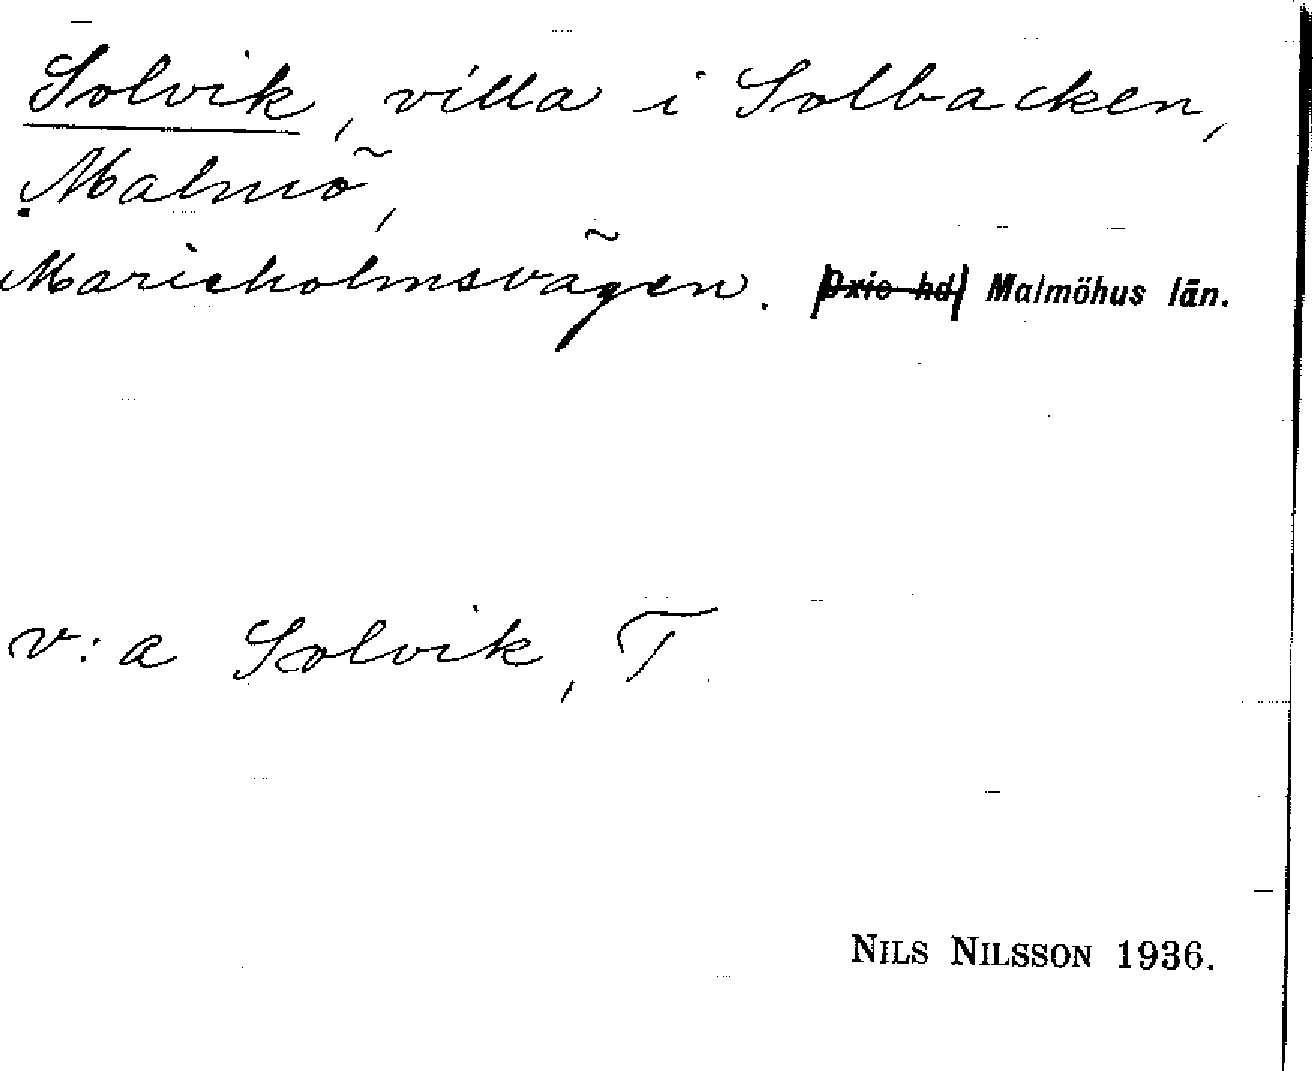 Solvik, villa i Solbacken,
Malmö,
Marieholmsvägen. Oxie hd Malmöhus län.
v: a Solvik, T
NILS NILSSON 1936.